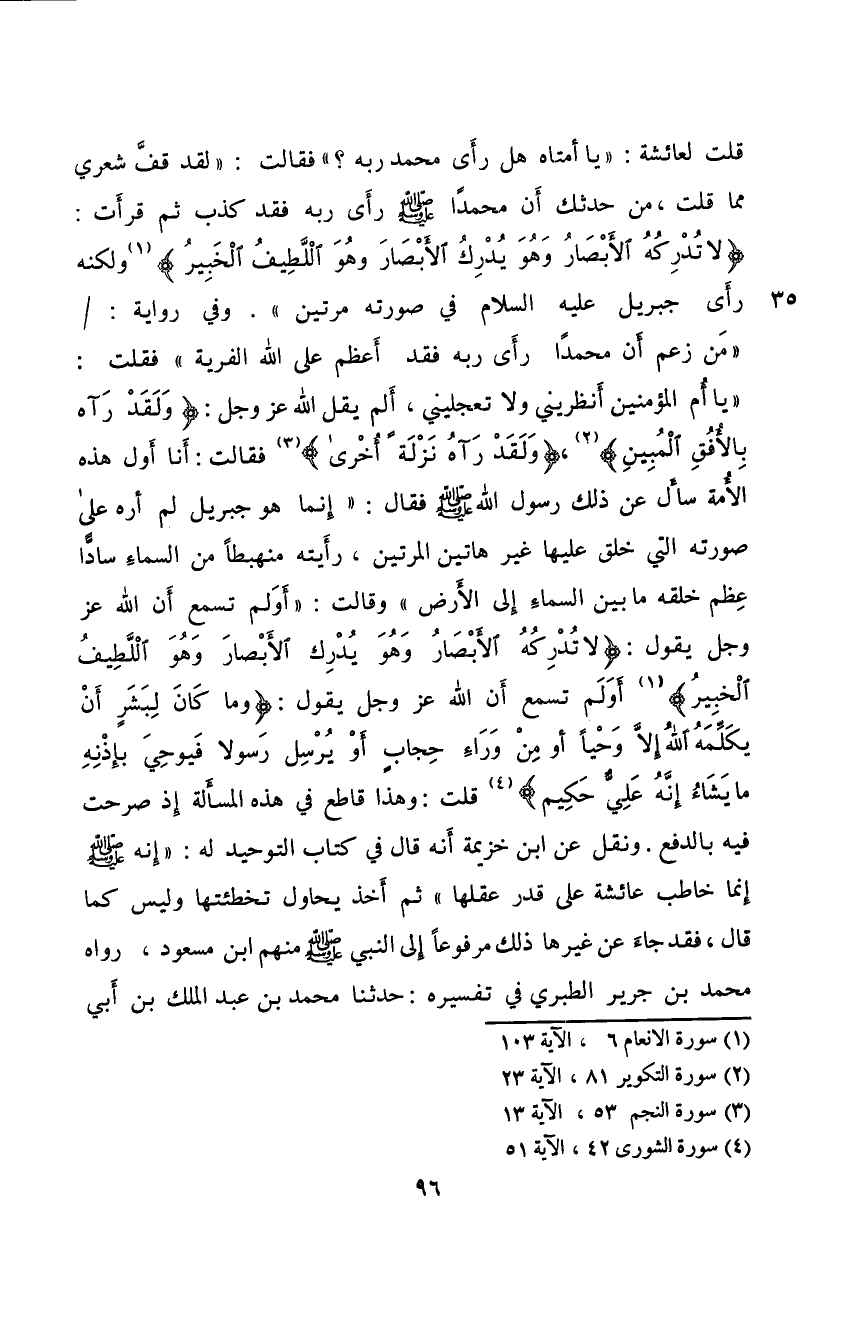 قلت لعائشة : «يا أمتاه هل رأَى محمد ربه ؟» فقالت : «لقد قفَّ شعري
مما قلت ، من حدثك أن محمدًا ﷺ رأَى ربه فقد كذب ثم قرأَت :
﴿لا تُدْرِكُهُ ٱلأَبْصَارُ وَهُوَ يُدْرِكُ ٱلأَبْصَارَ وهُوَ ٱللَّطِيفُ ٱلْخَبِيرُ﴾ (١) ولكنه
رأَى جبريل عليه السلام في صورته مرتين » . وفي رواية : / ٣٥
«مَن زعم أَن محمدًا رأَى ربه فقد أَعظم على الله الفرية » فقلت :
«يا أُم المؤمنين أَنظريني ولا تعجليني ، أَلم يقل الله عز وجل : ﴿وَلَقَدْ رَآه
بِالأُفُقِ ٱلْمُبِينِ﴾ (٢) ، ﴿وَلَقَدْ رَآهُ نَزْلَةً أُخْرىٰ﴾ (٣) فقالت : أَنا أَول هذه
الأُمة سأَل عن ذلك رسول الله ﷺ فقال : « إِنما هو جبريل لم أَره علىٰ
صورته التي خلق عليها غير هاتين المرتين ، رأَيته منهبطاً من السماءِ سادًّا
عِظم خلقه ما بين السماءِ إِلى الأَرض » وقالت : «أَوَلم تسمع أَن الله عز
وجل يقول : ﴿لا تُدْرِكُهُ ٱلأَبْصَارُ وَهُوَ يُدْرِك ٱلأَبْصارَ وَهُوَ ٱلْلَّطِيفُ
ٱلْخبِيرُ﴾ (١) أَوَلَم تسمع أَن الله عز وجل يقول : ﴿وما كَانَ لِبَشَرٍ أَنْ
يكَلِّمَهُ ٱللهُ إِلاَّ وَحْياً أو مِنْ وَرَاءِ حِجابٍ أَوْ يُرْسِل رَسولا فَيوحِيَ بإِذْنِهِ
ما يَشَاءُ إِنَّهُ عَلِيٌّ حَكِيم﴾ (٤) قلت : وهذا قاطع في هذه المسأَلة إِذ صرحت
فيه بالدفع . ونقل عن ابن خزيمة أَنه قال في كتاب التوحيد له : «إِنه ﷺ
إِنما خاطب عائشة على قدر عقلها » ثم أَخذ يحاول تخطئتها وليس كما
قال ، فقد جاءَ عن غيرها ذلك مرفوعاً إِلى النبي ﷺ منهم ابن مسعود ، رواه
محمد بن جرير الطبري في تفسيره : حدثنا محمد بن عبد الملك بن أَبي
(١) سورة الانعام ٦ ، الآية ١٠٣
(٢) سورة التكوير ٨١ ، الآية ٢٣
(٣) سورة النجم ٥٣ ، الآية ١٣
(٤) سورة الشورى ٤٢ ، الآية ٥١
٩٦